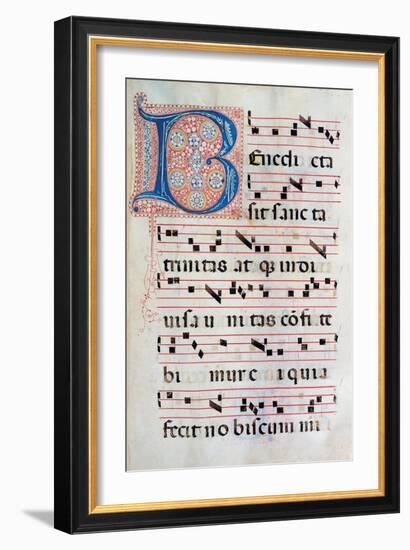 Benedicta
sit sancta
trinitas atqƺ indi
uisa unitas cōfite
bimur ei quia
fecit nobiscum mi